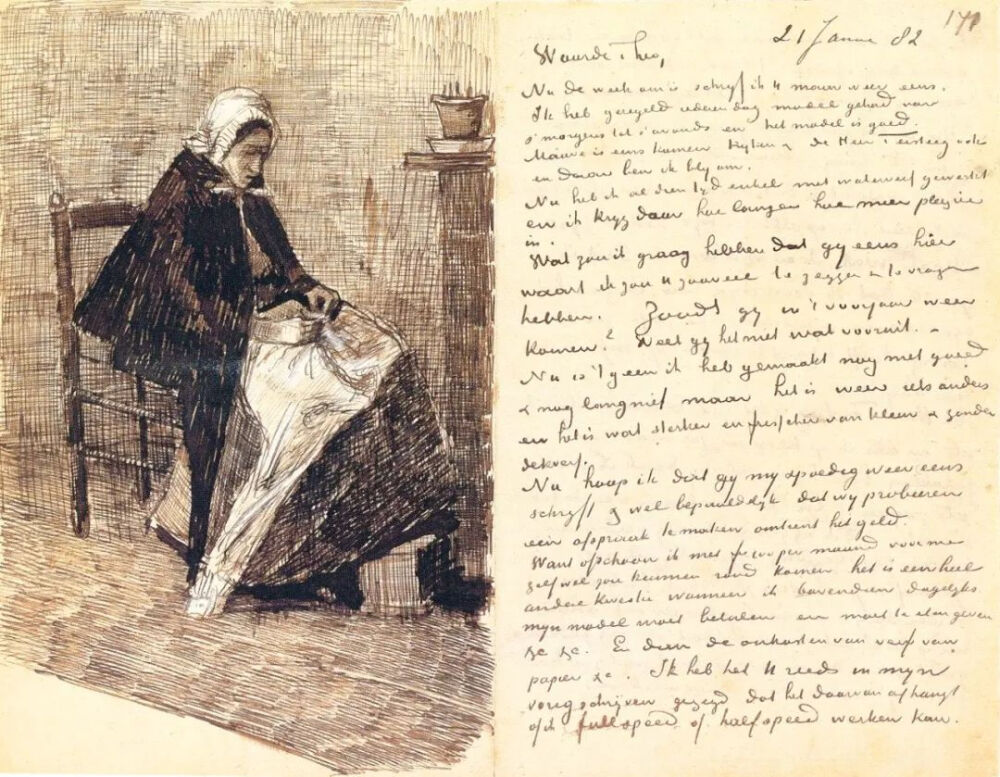 171
21 Janua 82
Waarde Theo,
Nu de week om is schryf ik U maar weer eens.
Ik heb geregeld iederen dag model gehad van
s'morgens tot s'avonds en het model is goed.
Mauve is eens komen kyken & de Heer Tersteeg ook
en daar ben ik bly om.
Nu heb ik al dien tyd enkel met waterverf gewerkt
en ik kryg daar hoe langer hoe meer pleyzier
in.
Wat zou ik graag hebben dat gy eens hier
waart ik zou U zooveel te zeggen & te vragen
hebben. Zoudt gy in 't voorjaar weer
komen? Weet gy het met wat vooruit. –
Nu is 't geen ik heb gemaakt nog niet goed
& nog lang niet maar het is weer iets anders
en het is wat sterker en frisscher van kleur & zonder
dekverf.
Nu hoop ik dat gy my spoedig weer eens
schryft & wel bepaaldelyk dat wy probeeren
een afspraak te maken omtrent het geld.
Want ofschoon ik met fr 100 per maand voor me
zelf wel zou kunnen rond komen het is een heel
andere kwestie wanneer ik bovendien dagelyks
myn model moet betalen en moet te eten geven
&c &c. En dan de onkosten van verf van
papier &c. Ik heb het U reeds in myn
vorig schryven gezegd dat het daarvan afhangt
of ik full speed of half speed werken kan.